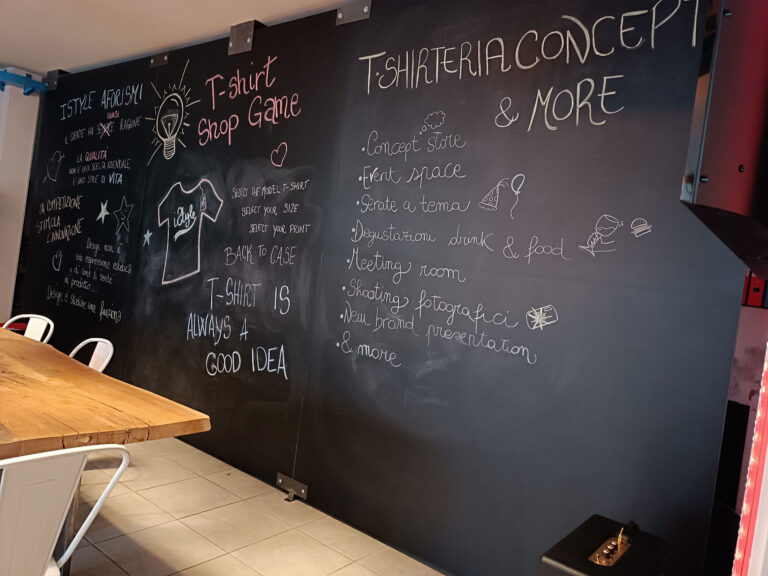 ISTYLE AFORISMI
QUASI
IL CLIENTE HA SEMPRE RAGIONE
LA QUALITÀ
NON È UNA SCELTA AZIENDALE
È UNO STILE DI VITA
LA COMPETIZIONE
STIMOLA
L'INNOVAZIONE
Design non è
solo espressione estetica
o di come si sente
un prodotto...
Design è studiare come funziona
T-shirt
Shop Game
iStyle
SELECT THE MODEL T-SHIRT
SELECT YOUR SIZE
SELECT YOUR PRINT
BACK TO CASE
T-SHIRT IS
ALWAYS A
GOOD IDEA
T-SHIRTERIA CONCEPT
& MORE
• Concept store
• Event space
• Serate a tema
• Degustazioni drink & food
• Meeting room
• Shooting fotografici
• New brand presentation
• & more